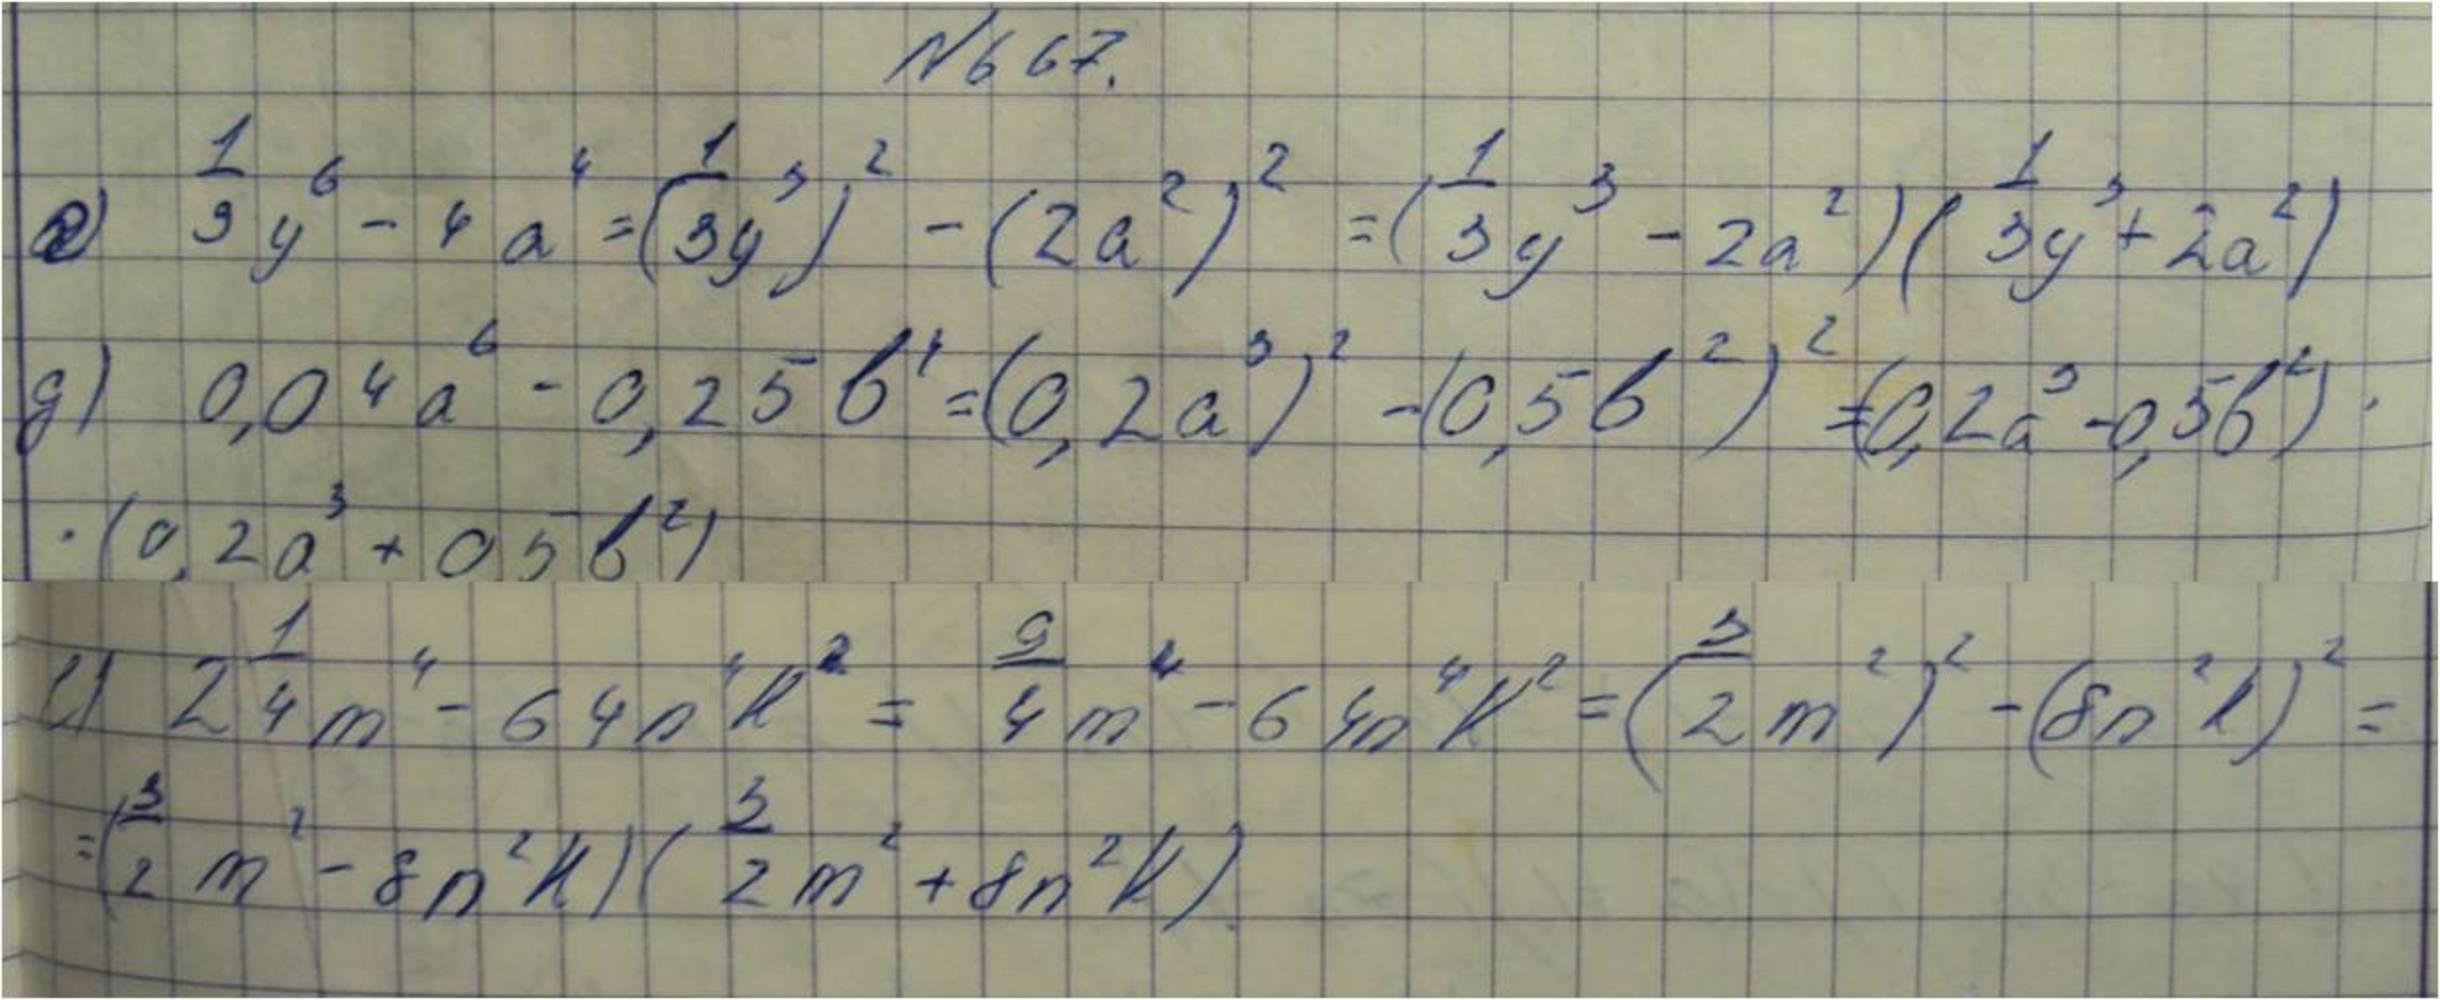 №667.
г) 1/9 y⁶ - 4a⁴ = (1/3 y³)² - (2a²)² = (1/3 y³ - 2a²)(1/3 y³ + 2a²)
д) 0,04a⁶ - 0,25b⁴ = (0,2a³)² - (0,5b²)² = (0,2a³ - 0,5b²) ·
· (0,2a³ + 0,5b²)
е) 2 1/4 m⁴ - 64n⁴k² = 9/4 m⁴ - 64n⁴k² = (3/2 m²)² - (8n²k)² =
= (3/2 m² - 8n²k)(3/2 m² + 8n²k).